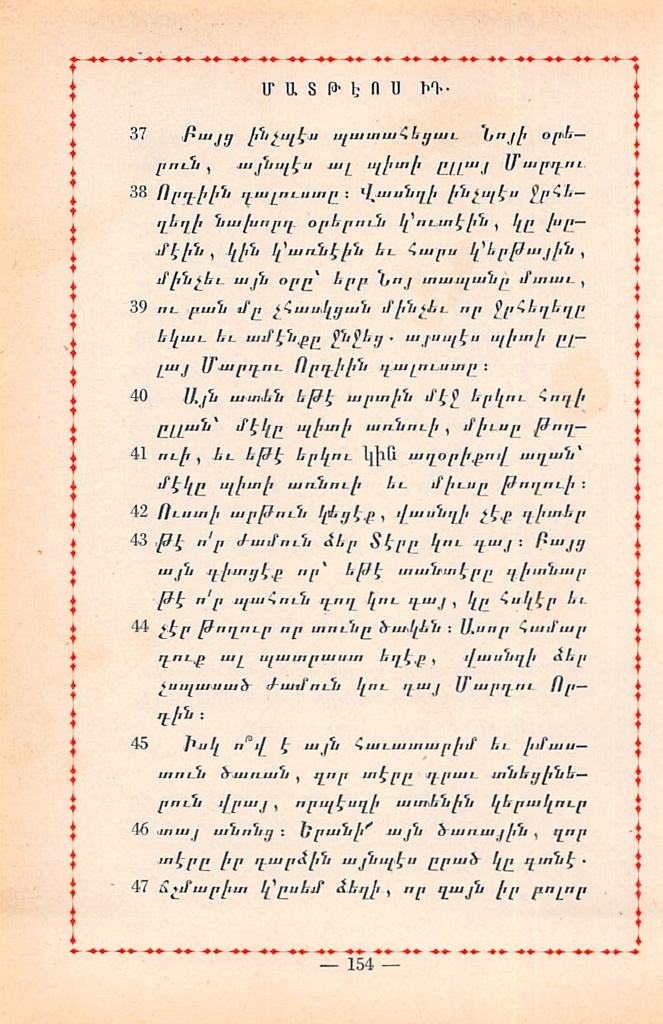 ՄԱՏԹԷՈՍ ԻԴ.
37 Բայց ինչպէս պատահեցաւ Նոյի օրե–
րուն, այնպէս ալ պիտի ըլլայ Մարդու
38 Որդիին գալուստը։ Վասնզի ինչպէս ջրհե–
ղեղի նախորդ օրերուն կ՚ուտէին, կը խը–
մէին, կին կ՚առնէին եւ հարս կ՚երթային,
մինչեւ այն օրը՝ երբ Նոյ տապանը մտաւ,
39 ու բան մը չհասկցան մինչեւ որ ջրհեղեղը
եկաւ եւ ամէնքը ջնջեց. այսպէս պիտի ըլ–
լայ Մարդու Որդիին գալուստը։
40 Այն ատեն եթէ արտին մէջ երկու հոգի
ըլլան՝ մէկը պիտի առնուի, միւսը թող–
41 ուի, եւ եթէ երկու կին աղօրիքով աղան՝
մէկը պիտի առնուի եւ միւսը թողուի։
42 Ուստի արթուն կեցէք, վասնզի չէք գիտեր
43 թէ ո՛ր ժամուն ձեր Տէրը կու գայ։ Բայց
այն գիտցէք որ՝ եթէ տանտէրը գիտնար
թէ ո՛ր պահուն գող կու գայ, կը հսկէր եւ
44 չէր թողուր որ տունը ծակեն։ Ասոր համար
դուք ալ պատրաստ եղէք, վասնզի ձեր
չսպասած ժամուն կու գայ Մարդու Որ–
դին։
45 Իսկ ո՞վ է այն հաւատարիմ եւ իմաս–
տուն ծառան, զոր տէրը դրաւ տնեցինե–
րուն վրայ, որպէսզի ատենին կերակուր
46 տայ անոնց։ Երանի՜ այն ծառային, զոր
տէրը իր դարձին այնպէս ըրած կը գտնէ.
47 Ճշմարիտ կ՚ըսեմ ձեզի, որ զայն իր բոլոր
— 154 —